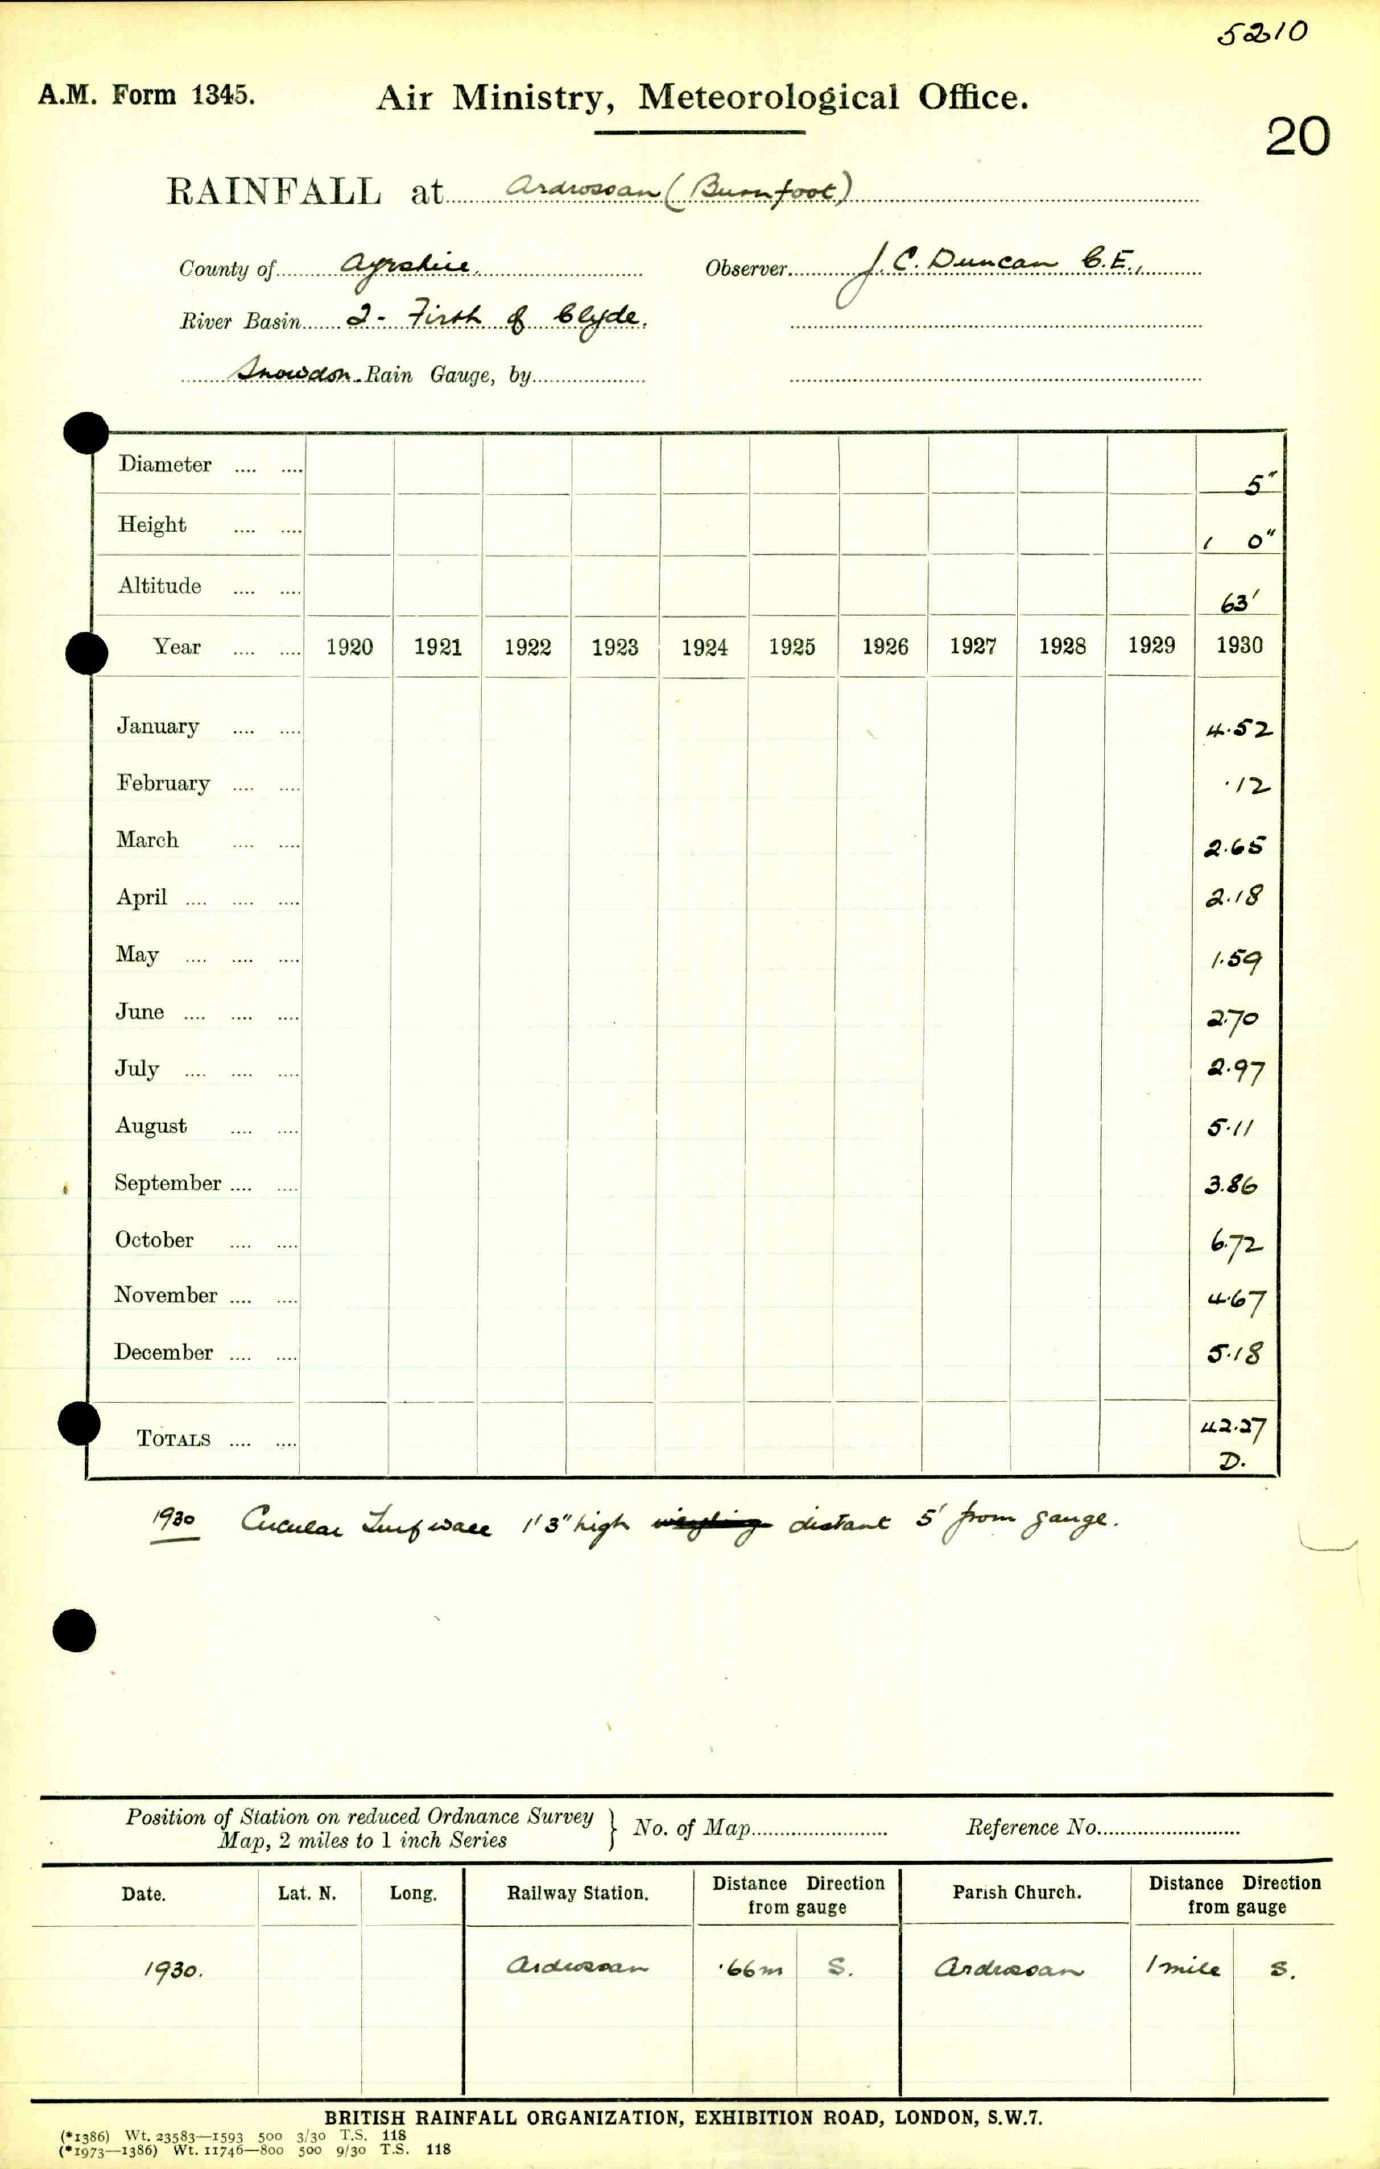 5210
A.M. Form 1345. Air Ministry, Meteorological Office.
20
RAINFALL at Ardrossan (Burnfoot)
County of Ayrshire. Observer J. C. Duncan C.E.,
River Basin 2 - Firth of Clyde.
Snowdon Rain Gauge, by
Diameter .... .... 5"
Height .... .... 1 0"
Altitude .... .... 63'
Year .... .... 1920 1921 1922 1923 1924 1925 1926 1927 1928 1929 1930
January .... .... 4.52
February .... .... .12
March .... .... 2.65
April .... .... .... 2.18
May .... .... .... 1.59
June .... .... .... 2.70
July .... .... .... 2.97
August .... .... 5.11
September .... .... 3.86
October .... .... 6.72
November .... .... 4.67
December .... .... 5.18
TOTALS .... .... 42.27
D.
1930 Circular Turf wall 1'3" high distant 5' from gauge.
Position of Station on reduced Ordnance Survey
Map, 2 miles to 1 inch Series } No. of Map Reference No.
Date. Lat. N. Long. Railway Station. Distance Direction from gauge Parish Church. Distance Direction from gauge
1930. Ardrossan .66m S. Ardrossan 1 mile S.
BRITISH RAINFALL ORGANIZATION, EXHIBITION ROAD, LONDON, S.W.7.
(*1386) Wt. 23583—1593 500 3/30 T.S. 118
(*1973—1386) Wt. 11746—800 500 9/30 T.S. 118